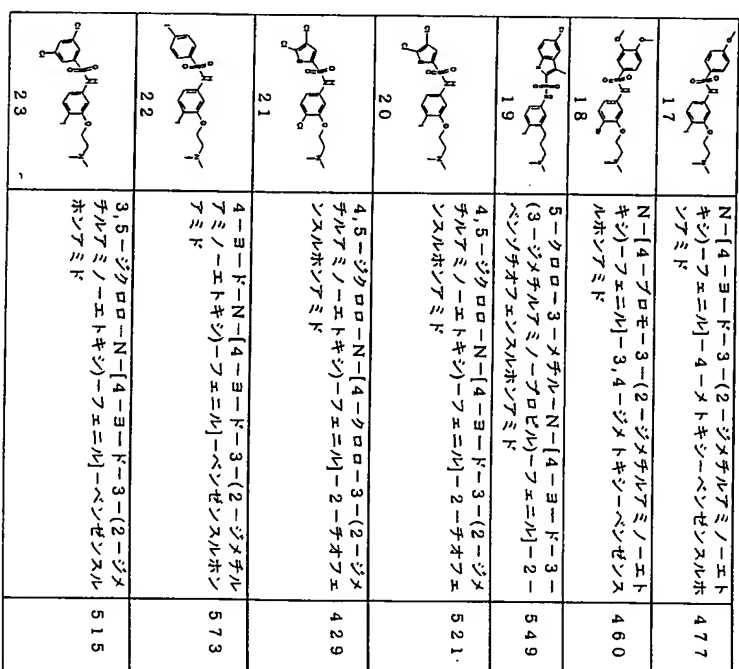 17
N－[4－ヨード－3－(2－ジメチルアミノ－エト
キシ)－フェニル]－4－メトキシ－ベンゼンスルホ
ンアミド
477
18
N－[4－ブロモ－3－(2－ジメチルアミノ－エト
キシ)－フェニル]－3,4－ジメトキシ－ベンゼンス
ルホンアミド
460
19
5－クロロ－3－メチル－N－[4－ヨード－3－
(3－ジメチルアミノ－プロピル)－フェニル]－2－
ベンゾチオフェンスルホンアミド
549
20
4,5－ジクロロ－N－[4－ヨード－3－(2－ジメ
チルアミノ－エトキシ)－フェニル]－2－チオフェ
ンスルホンアミド
521
21
4,5－ジクロロ－N－[4－クロロ－3－(2－ジメ
チルアミノ－エトキシ)－フェニル]－2－チオフェ
ンスルホンアミド
429
22
4－ヨード－N－[4－ヨード－3－(2－ジメチル
アミノ－エトキシ)－フェニル]－ベンゼンスルホン
アミド
573
23
3,5－ジクロロ－N－[4－ヨード－3－(2－ジメ
チルアミノ－エトキシ)－フェニル]－ベンゼンスル
ホンアミド
515